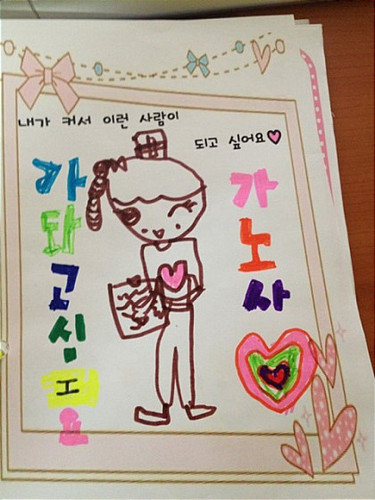 내가 커서 이런 사람이
되고 싶어요
가노사
가돠고심요